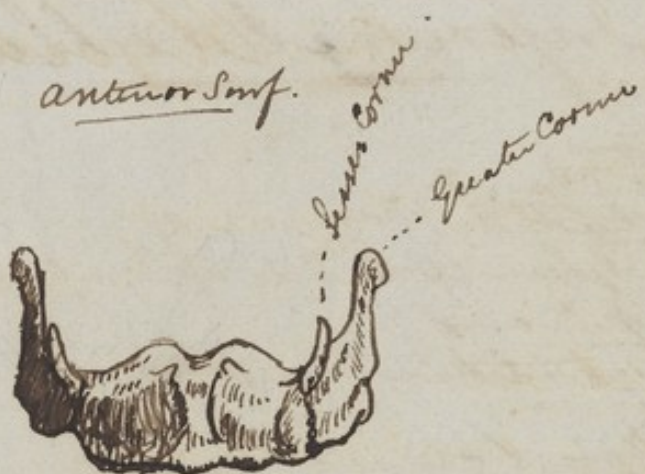 Anterior Surf.
Lesser Cornu.
Greater Cornu